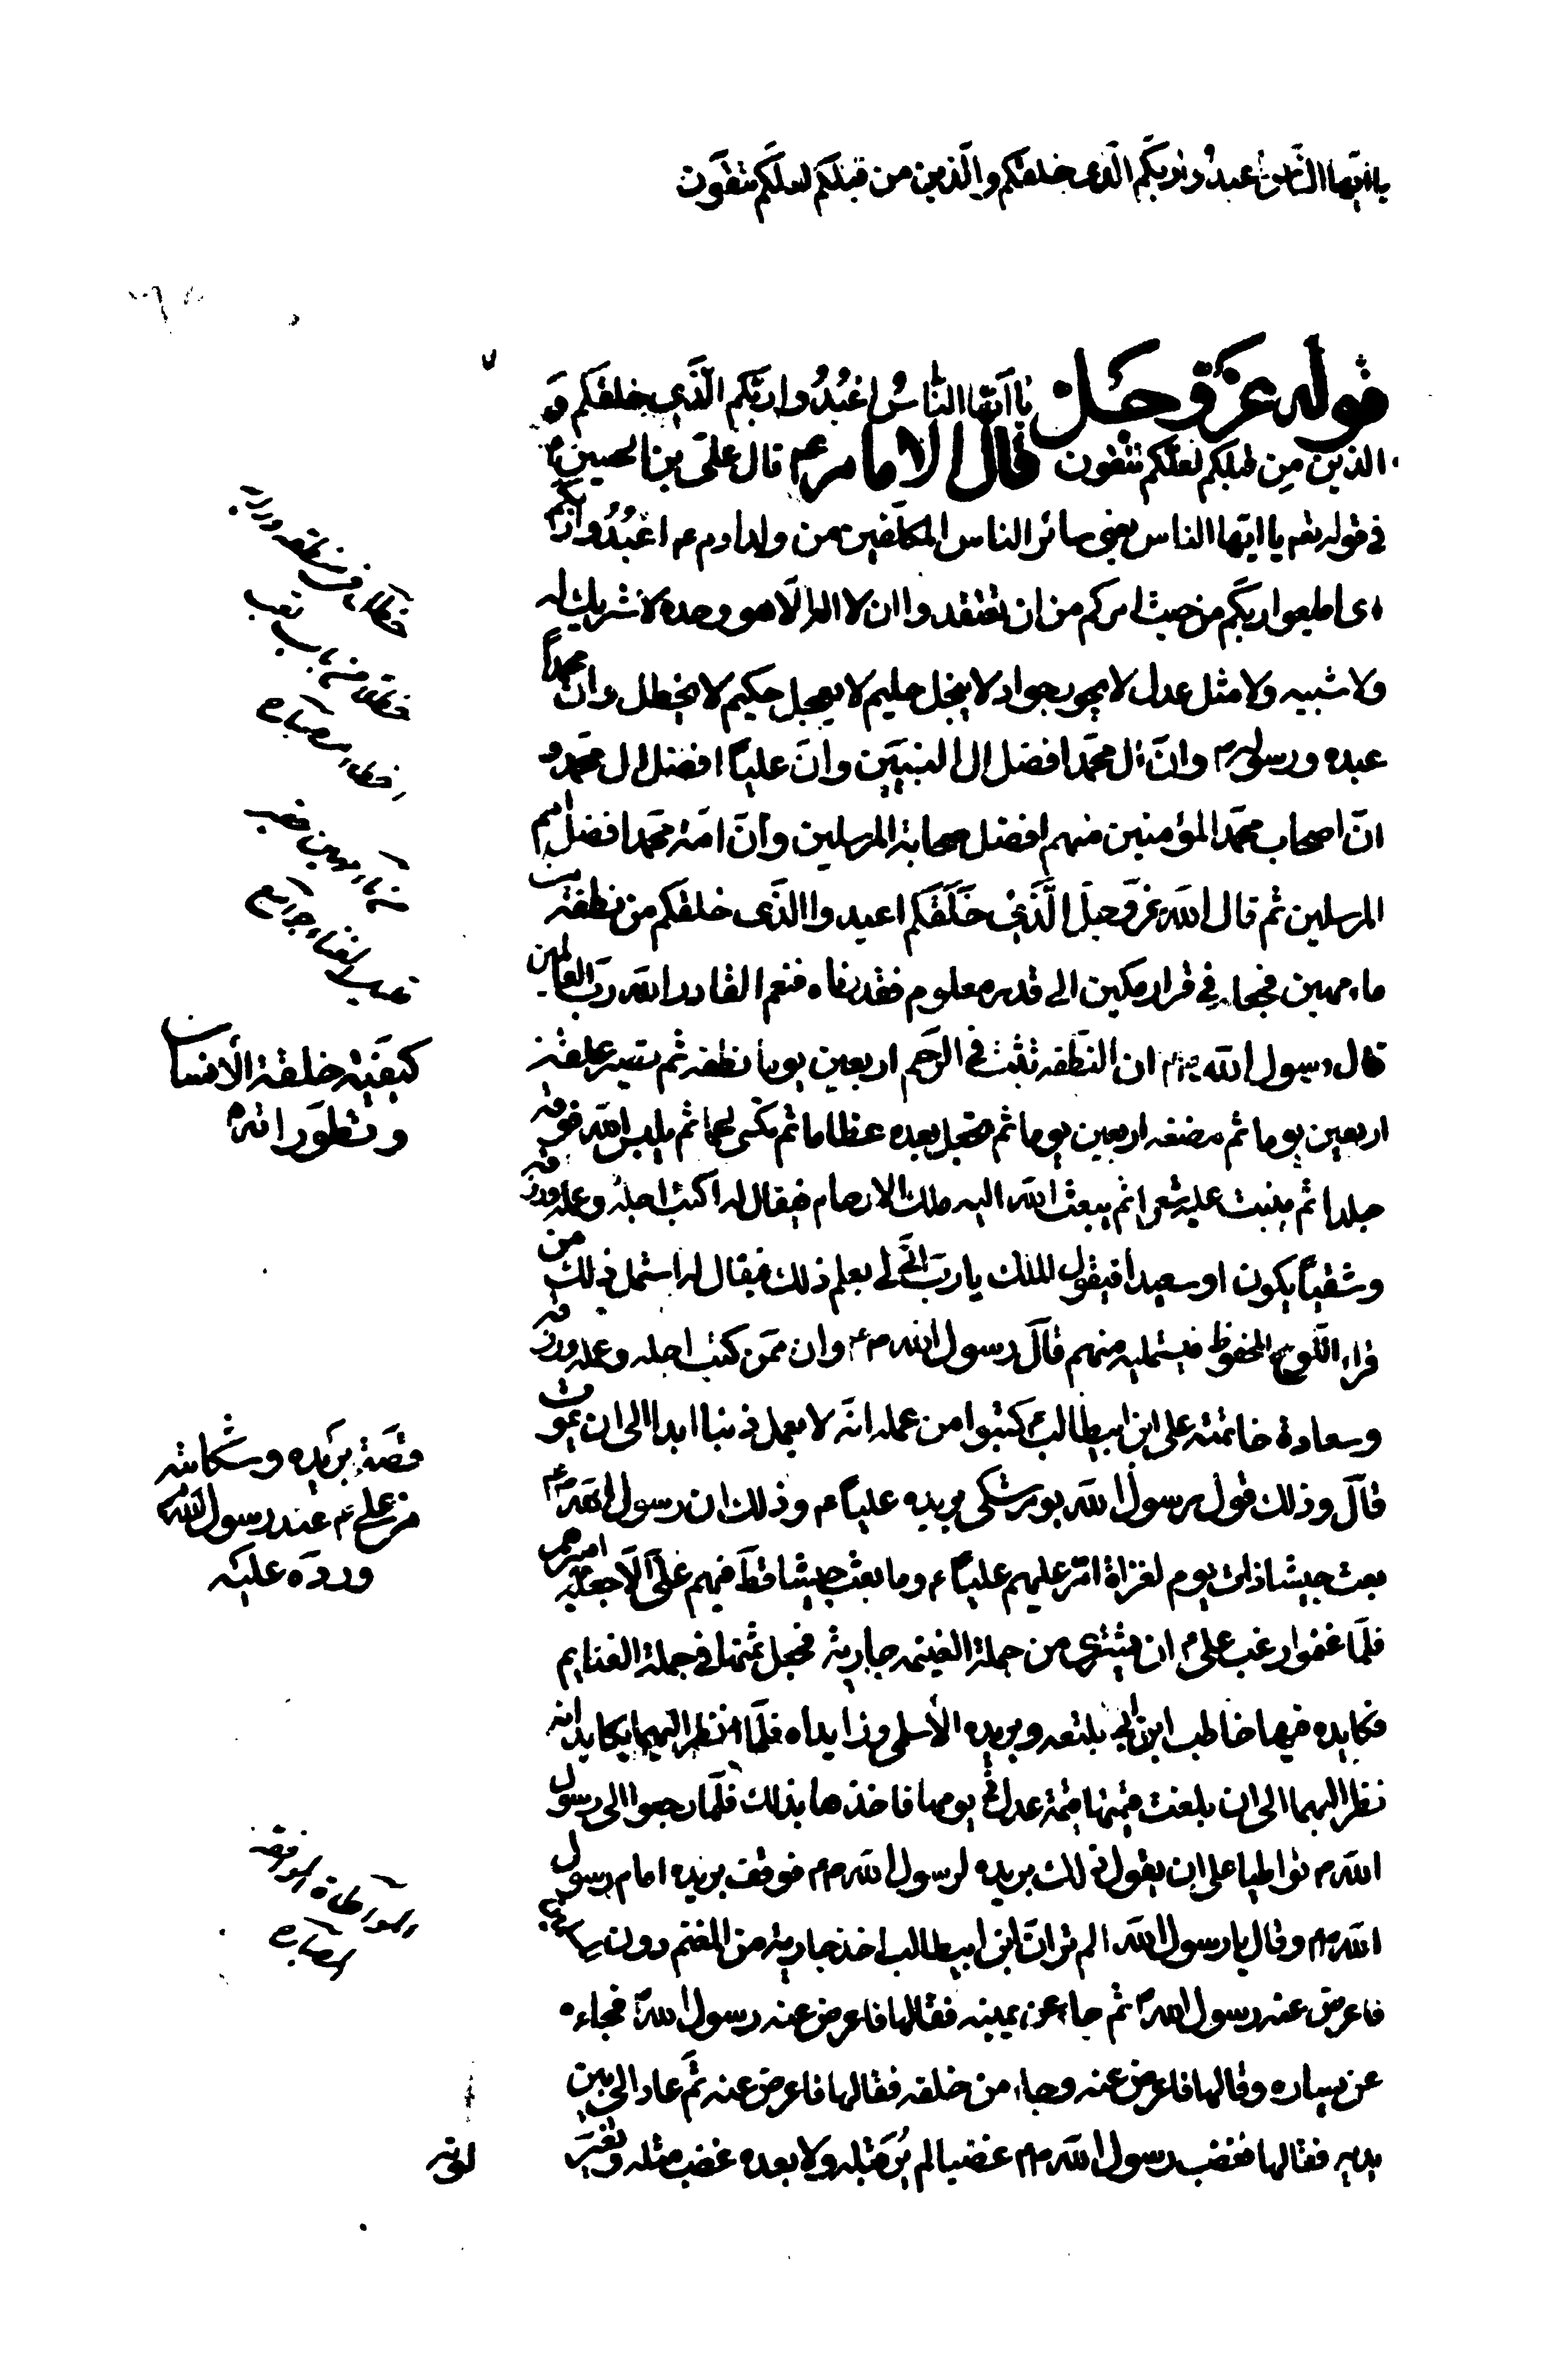 يا ايّها النّاس اعبدوا ربّكم الّذى خلقكم والّذين من قبلكم لعلّكم تتقون
قوله عزّ وجلّ يا ايّها النّاسُ اعْبُدُوا ربّكم الّذي خلقكم وَ
الذين مِن قبلكم لعلّكم تتقون قال الامام ع قال علىّ بن الحسين ع
في قوله تعه يا ايّها الناس يعنى سائر الناس المكلّفين من ولد ادم ع اعْبُدُوا ربّكم
اى اطيعوا ربّكم من حيث امركم من ان تعتقدوا ان لا اله الّا هو وحده لا شريك له
ولا شبيه ولا مثل عدل لا يجور جواد لا يبخل حليم لا يعجل حكيم لا يخطل وانّ محمداً
عبده ورسوله ص وانّ ال محمّد افضل ال النبيّين وانّ عليّاً افضل ال محمّد و
انّ اصحاب محمّد المؤمنين منهم افضل صحابة المرسلين وانّ امّة محمّد افضل امم
المرسلين ثم قال الله عزّ وجلّ الَّذي خَلَقَكُم اعبدوا الذّى خلقكم من نطفة من
ماء مهين فجعله في قرار مكين الى قدر معلوم فقدرناه فنعم القادر الله ربّ العالمين
قال رسول الله ص ان النطفة تثبت في الرّحم اربعين يوما نطفه ثم تصير علقة
اربعين يوما ثم مضغه اربعين يوما ثم تجعل بعده عظاما ثم تكسى لحما ثم يلبس الله فوقه
جلدا ثم ينبت عليه شعرا ثم يبعث الله اليه ملك الارحام فيقال له اكتب اجلهُ وعمله ورزقه
وشقيّاً يكون او سعيدا فيقول الملك يا ربّ انّى لى بعلم ذلك فيقال له استمل ذلك من
قراء اللّوح المحفوظ فيستمليه منهم قالَ رسول الله ص وان ممّن كتب اجله وعمله ورزقه
وسعادة خاتمته على ابن ابيطالب ع كتبوا من عمله انّه لا يعمل ذنبا ابدا الى ان يموت
قالَ وذلك قول رسول الله يوم شكى بريده عليّاً ع وذلك ان رسول الله ص
بعث جيشا ذات يوم لغزاة امّر عليهم عليّاً ع وما بعث جيشا قطّ فيهم علىّ الّا جعله اميرهم
فلمّا غنموا رغب على ع ان يشترى من جملة الغنيمه جارية فجعل ثمنها في جملة الغنايم
فكايده فيها خاطب ابن ابى بلتعه وبريده الأسلمى وزايداه فلمّا نظر اليهما يكايدانه
نظر اليهما الى ان بلغت قيمتها قيمة عدل في يومها فاخذها بذلك فلمّا رجعوا الى رسول
الله ص تواطيا على ان يقول ذلك بريده لرسول الله ص فوقف بريده امام رسول
الله ص وقال يا رسول الله الم تر انّ ابن ابيطالب اخذ جارية من المغنم دون
فاعرض عنه رسول الله ص ثم جاء عن يمينه فقالها فاعرض عنه رسول الله ص فجاءه
عن يساره وقالها فاعرض عنه وجاء من خلفه فقالها فاعرض عنه ثمّ عاد الى بين
يديه فقالها فغضب رسول الله ص غضبا لم يُرَ قبله ولا بعده غضب مثله وتغيّر
لونه
كيفيّة خلقة الأنسان
وتطوّراته
قصّة بريده وشكايته
من على ع عند رسول الله ص
وردّه عليه